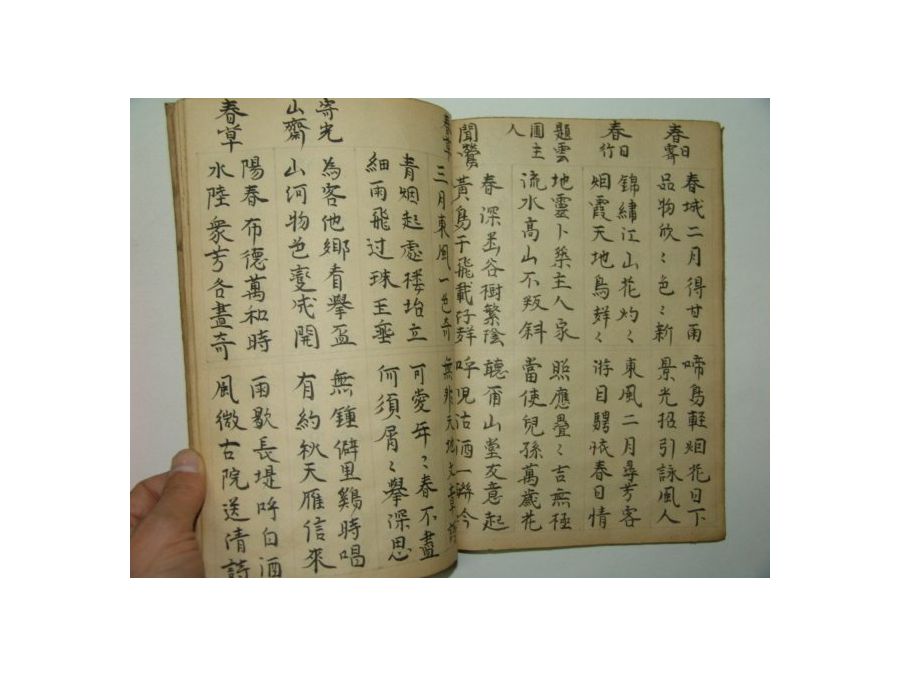 春日霽
春城二月得甘雨 啼鳥軽烟花日下
品物欣〻色〻新 景光招引詠風人
春日行
錦繡江山花灼〻 東風二月尋芳客
烟霞天地鳥群〻 游目騁懷春日情
題雲圃主人
地靈卜築主人家 照應疊〻吉無極
流水高山不叛斜 當使兒孫萬歲花
聞鶯
春深幽谷樹繁陰 聽爾山堂友意起
黃鳥于飛載好群 呼児沽酒一聯今
春草
三月東風一色奇 無非天地文章詩
青烟起處楼坮立 可愛年〻春不盡
細雨飛过珠玉垂 何須屑〻擧深思
寄光山齋
為客他鄉看擧盃 無鍾僻里鷄時唱
山河物色變成開 有約秋天雁信來
春草
陽春布德萬和時 雨歇長堤呼白酒
水陸衆芳各盡奇 風微古院送倩詩